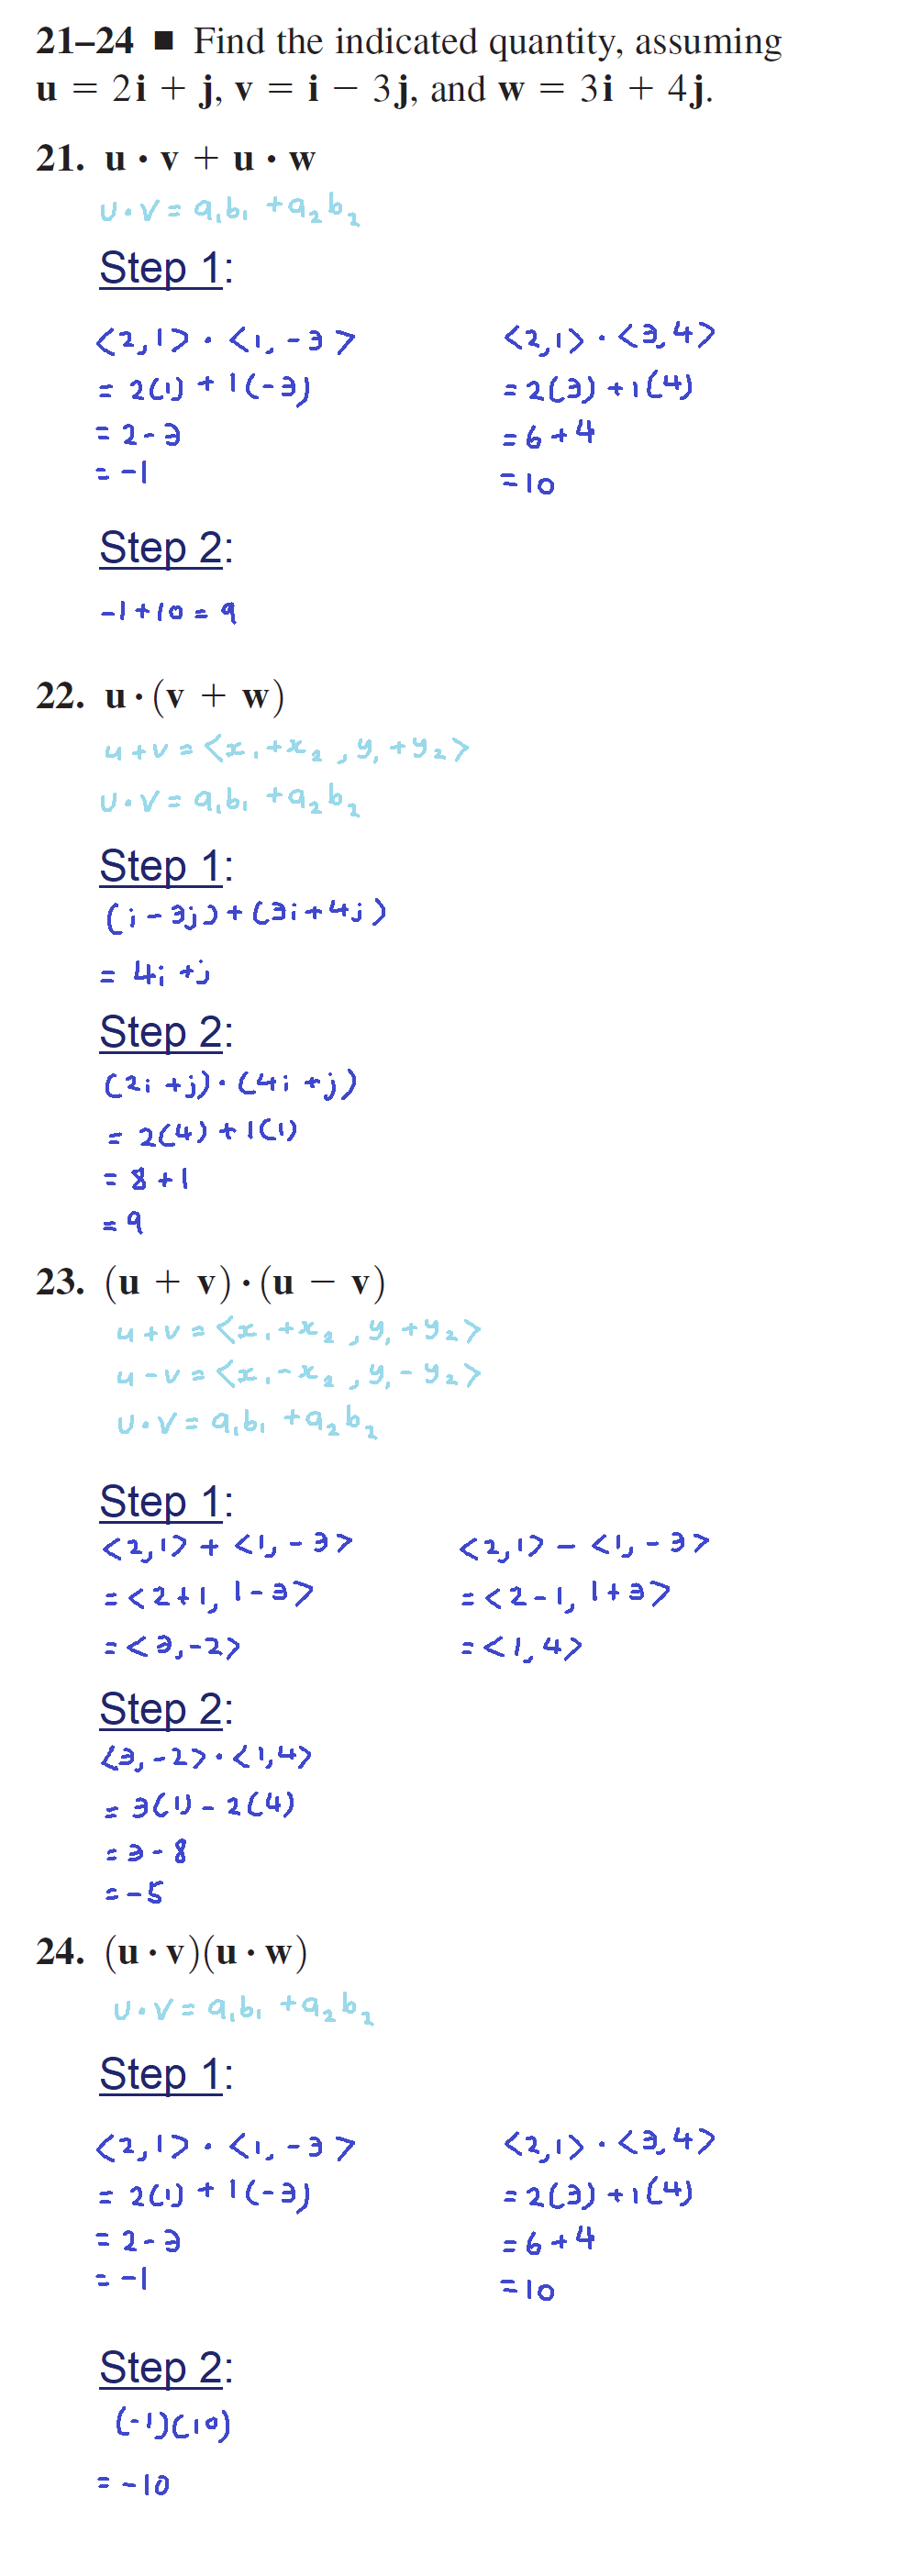 21–24 ■ Find the indicated quantity, assuming
u = 2i + j, v = i − 3j, and w = 3i + 4j.
21. u · v + u · w
u · v = a₁b₁ + a₂b₂
Step 1:
<2,1> · <1,-3> <2,1> · <3,4>
= 2(1) + 1(-3) = 2(3) + 1(4)
= 2-3 = 6+4
= -1 = 10
Step 2:
-1+10 = 9
22. u · (v + w)
u+v = <x₁+x₂, y₁+y₂>
u · v = a₁b₁ + a₂b₂
Step 1:
(i-3j)+(3i+4j)
= 4i+j
Step 2:
(2i+j) · (4i+j)
= 2(4) + 1(1)
= 8+1
= 9
23. (u + v) · (u − v)
u+v = <x₁+x₂, y₁+y₂>
u-v = <x₁-x₂, y₁-y₂>
u · v = a₁b₁ + a₂b₂
Step 1:
<2,1> + <1,-3> <2,1> - <1,-3>
= <2+1, 1-3> = <2-1, 1+3>
= <3,-2> = <1,4>
Step 2:
<3,-2> · <1,4>
= 3(1) - 2(4)
= 3-8
= -5
24. (u · v)(u · w)
u · v = a₁b₁ + a₂b₂
Step 1:
<2,1> · <1,-3> <2,1> · <3,4>
= 2(1) + 1(-3) = 2(3) + 1(4)
= 2-3 = 6+4
= -1 = 10
Step 2:
(-1)(10)
= -10